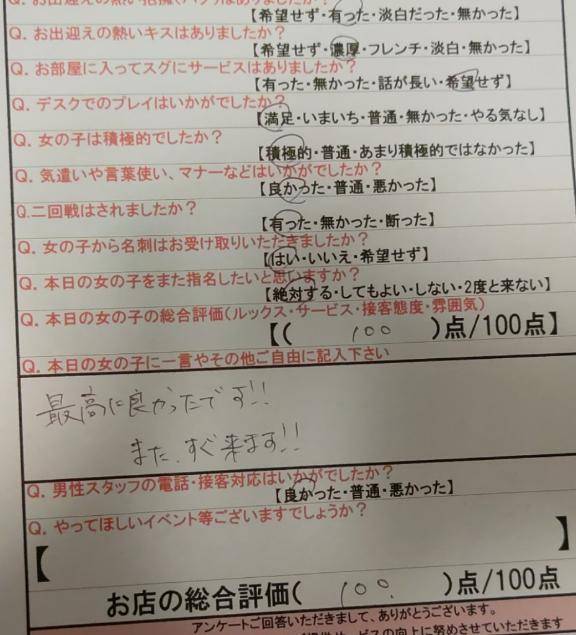 【希望せず・有った・淡白だった・無かった】
Q. お出迎えの熱いキスはありましたか?
【希望せず・濃厚・フレンチ・淡白・無かった】
Q. お部屋に入ってスグにサービスはありましたか?
【有った・無かった・話が長い・希望せず】
Q. デスクでのプレイはいかがでしたか?
【満足・いまいち・普通・無かった・やる気なし】
Q. 女の子は積極的でしたか?
【積極的・普通・あまり積極的ではなかった】
Q. 気遣いや言葉使い、マナーなどはいかがでしたか?
【良かった・普通・悪かった】
Q.二回戦はされましたか?
【有った・無かった・断った】
Q. 女の子から名刺はお受け取りいただきましたか?
【はい・いいえ・希望せず】
Q. 本日の女の子をまた指名したいと思いますか?
【絶対する・してもよい・しない・2度と来ない】
Q. 本日の女の子の総合評価(ルックス・サービス・接客態度・雰囲気)
【( 100 )点/100点】
Q. 本日の女の子に一言やその他ご自由に記入下さい
最高に良かったです!!
また、すぐ来ます!!
Q. 男性スタッフの電話・接客対応はいかがでしたか?
【良かった・普通・悪かった】
Q. やってほしいイベント等ございますでしょうか?
【 】
お店の総合評価( 100 )点/100点
アンケートご回答いただきまして、ありがとうございます。
の向上に努めさせていただきます